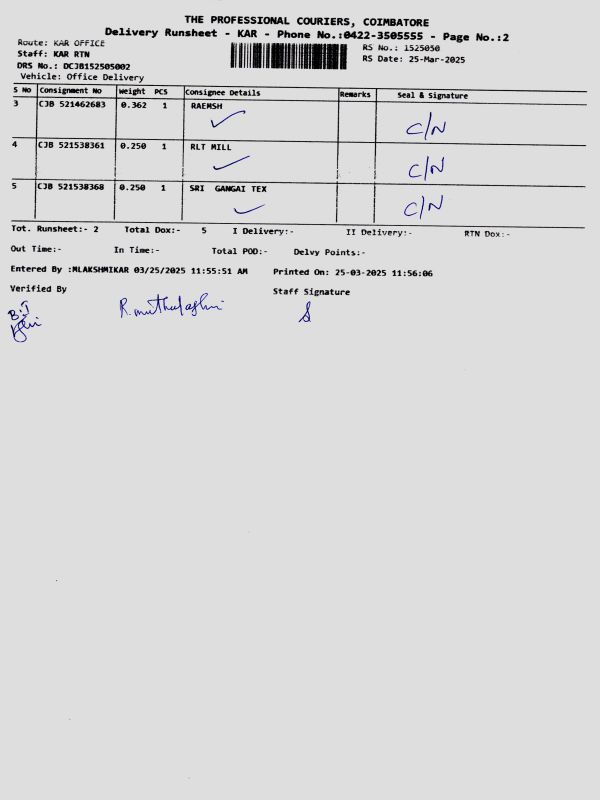 THE PROFESSIONAL COURIERS, COIMBATORE
Delivery Runsheet - KAR - Phone No.:0422-3505555 - Page No.:2
Route: KAR OFFICE RS No.: 1525050
Staff: KAR RTN RS Date: 25-Mar-2025
DRS No.: DCJB152505002
Vehicle: Office Delivery
S No Consignment No Weight PCS Consignee Details Remarks Seal & Signature
3 CJB 521462683 0.362 1 RAEMSH C/N
4 CJB 521538361 0.250 1 RLT MILL C/N
5 CJB 521538368 0.250 1 SRI GANGAI TEX C/N
Tot. Runsheet:- 2 Total Dox:- 5 I Delivery:- II Delivery:- RTN Dox:-
Out Time:- In Time:- Total POD:- Delvy Points:-
Entered By :MLAKSHMIKAR 03/25/2025 11:55:51 AM Printed On: 25-03-2025 11:56:06
Verified By Staff Signature